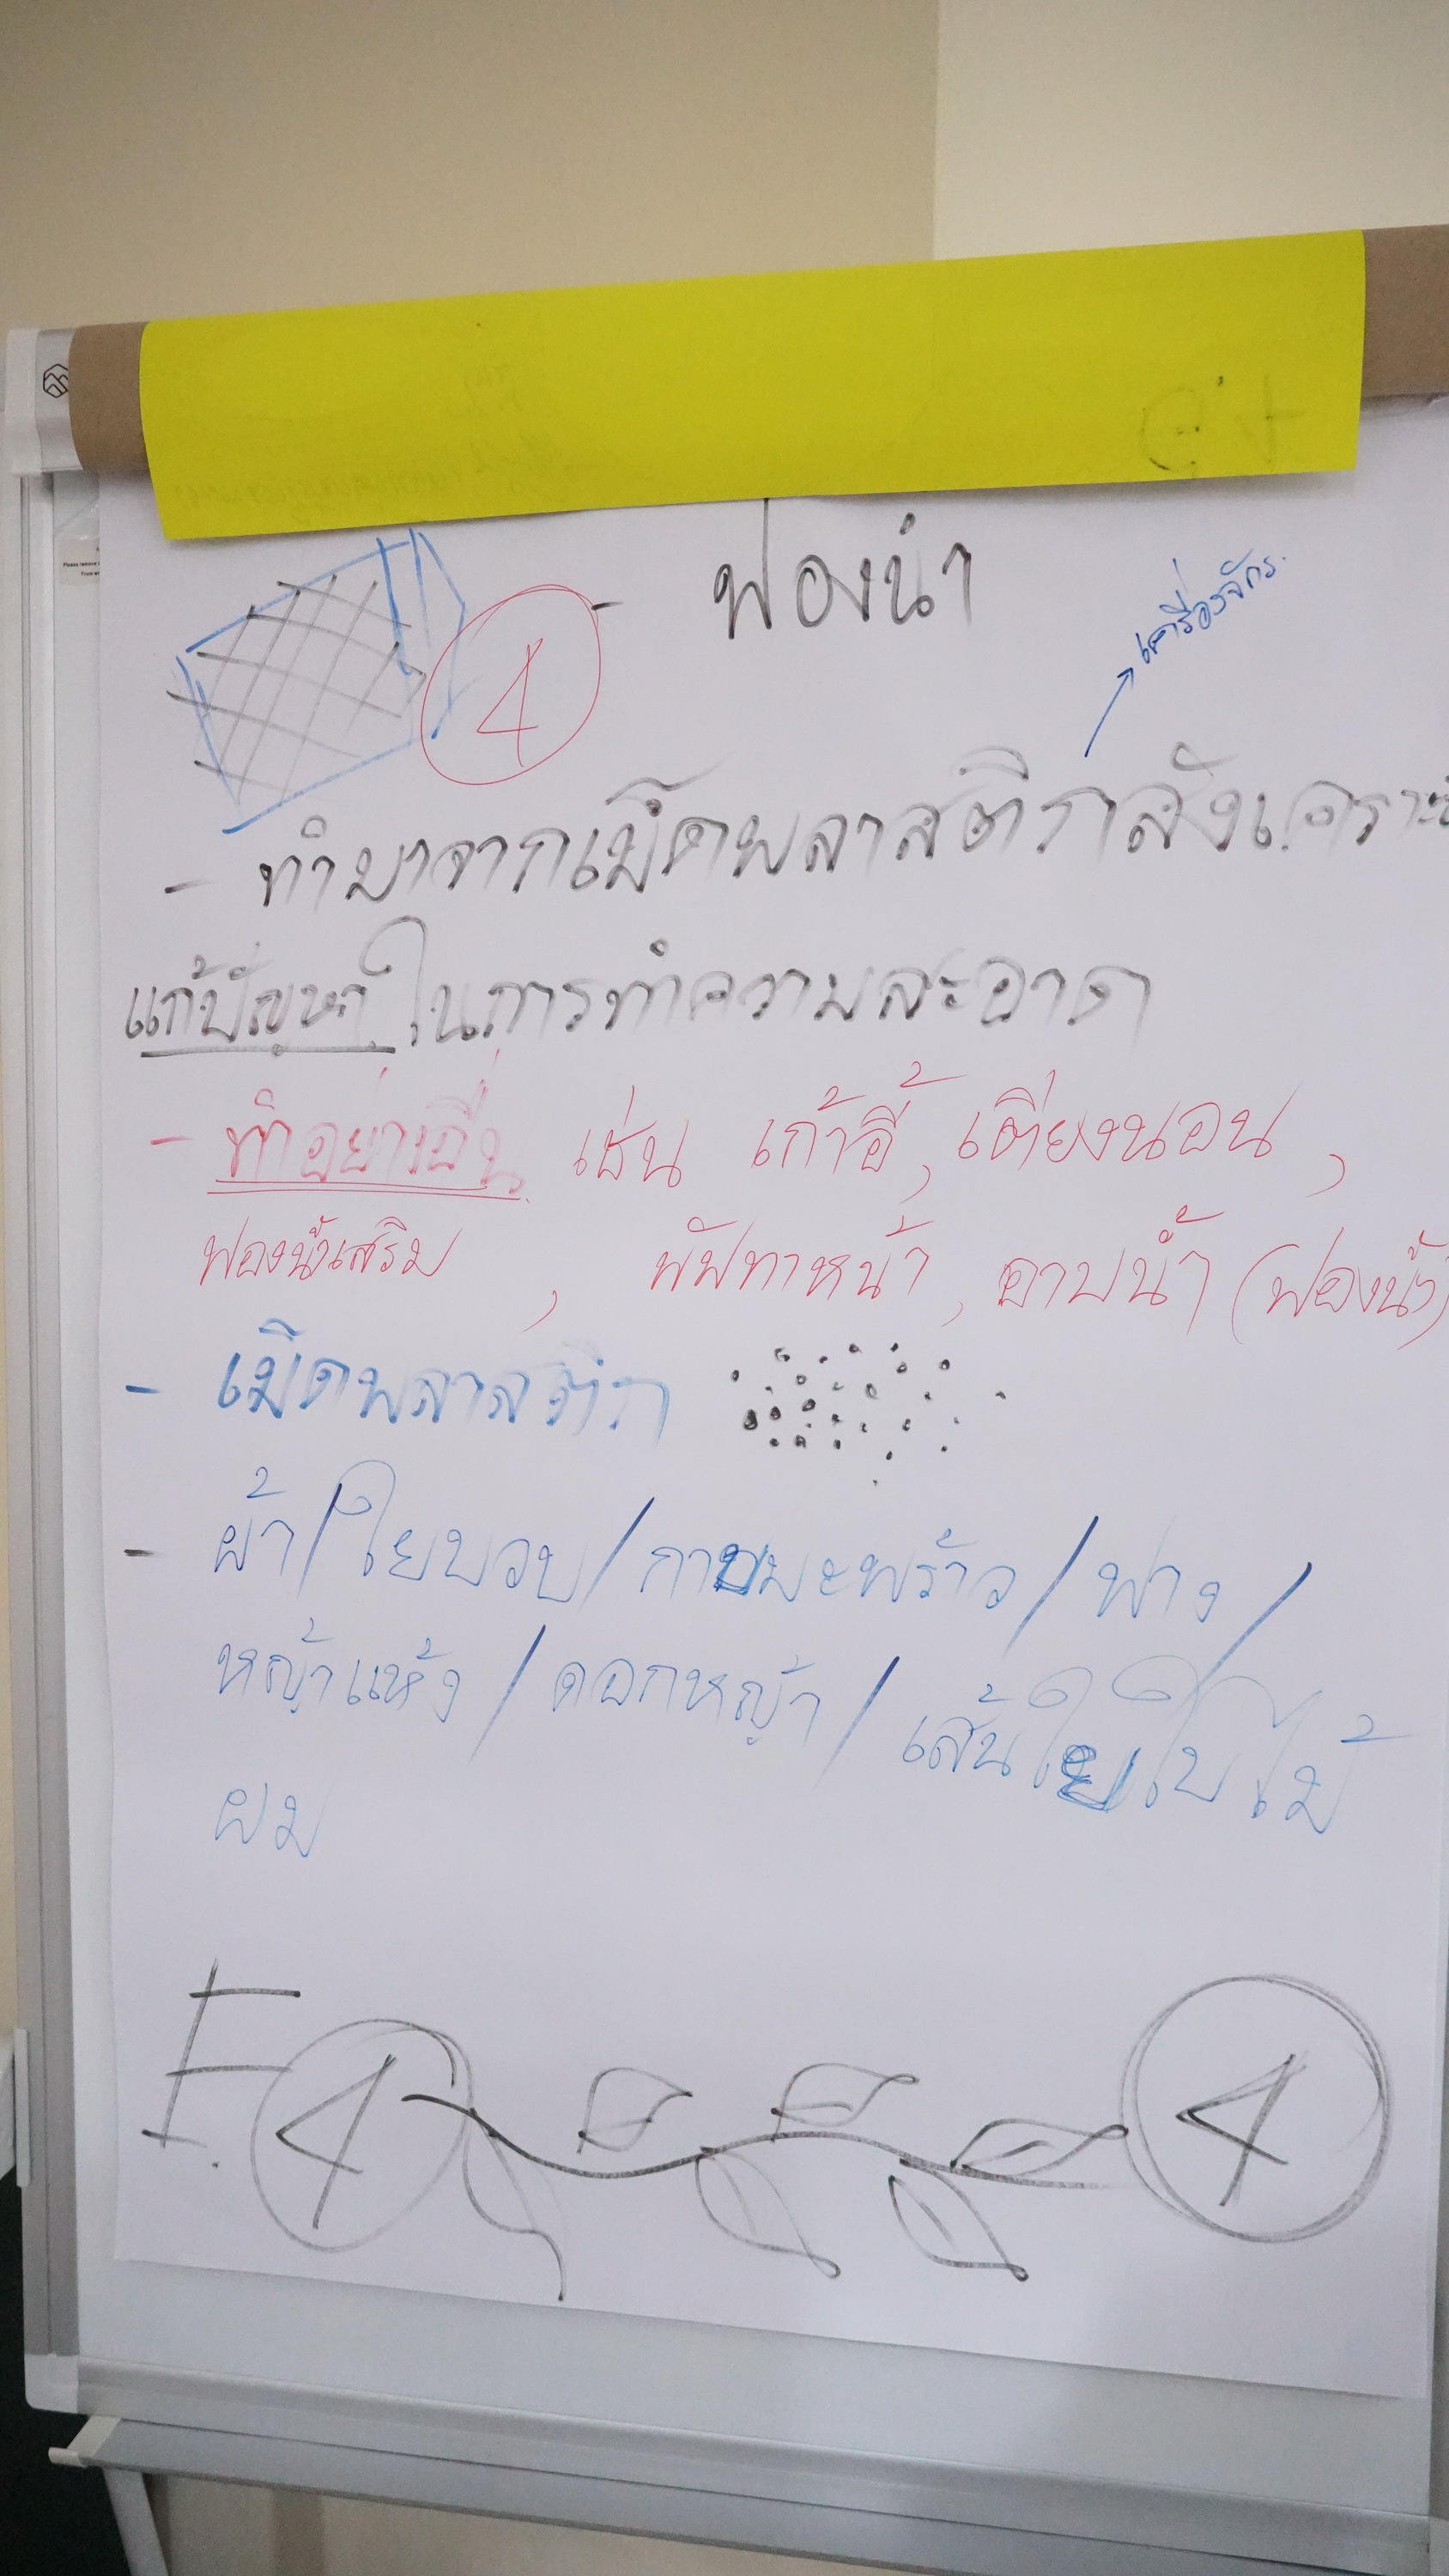 - ฟองน้ำ
4
เครื่องจักร
- ทำมาจากเม็ดพลาสติกสังเคราะห์
แก้ปัญหา ในการทำความสะอาด
- ทำอย่างอื่น เช่น เก้าอี้, เตียงนอน,
ฟองน้ำเสริม, พัฟทาหน้า, อาบน้ำ (ฟองน้ำ)
- เม็ดพลาสติก
- ผ้า/ใยบวบ/กาบมะพร้าว/ฟาง/
หญ้าแห้ง/ดอกหญ้า/เส้นใยใบไม้
ผม
4 4